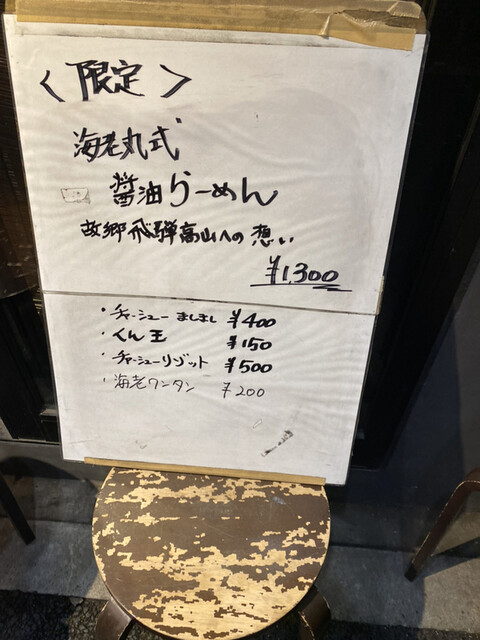 ＜限定＞
海老丸式
醤油らーめん
故郷飛騨高山への想い
¥1,300
・チャーシューましまし ¥400
・くん玉 ¥150
・チャーシューリゾット ¥500
・海老ワンタン ¥200